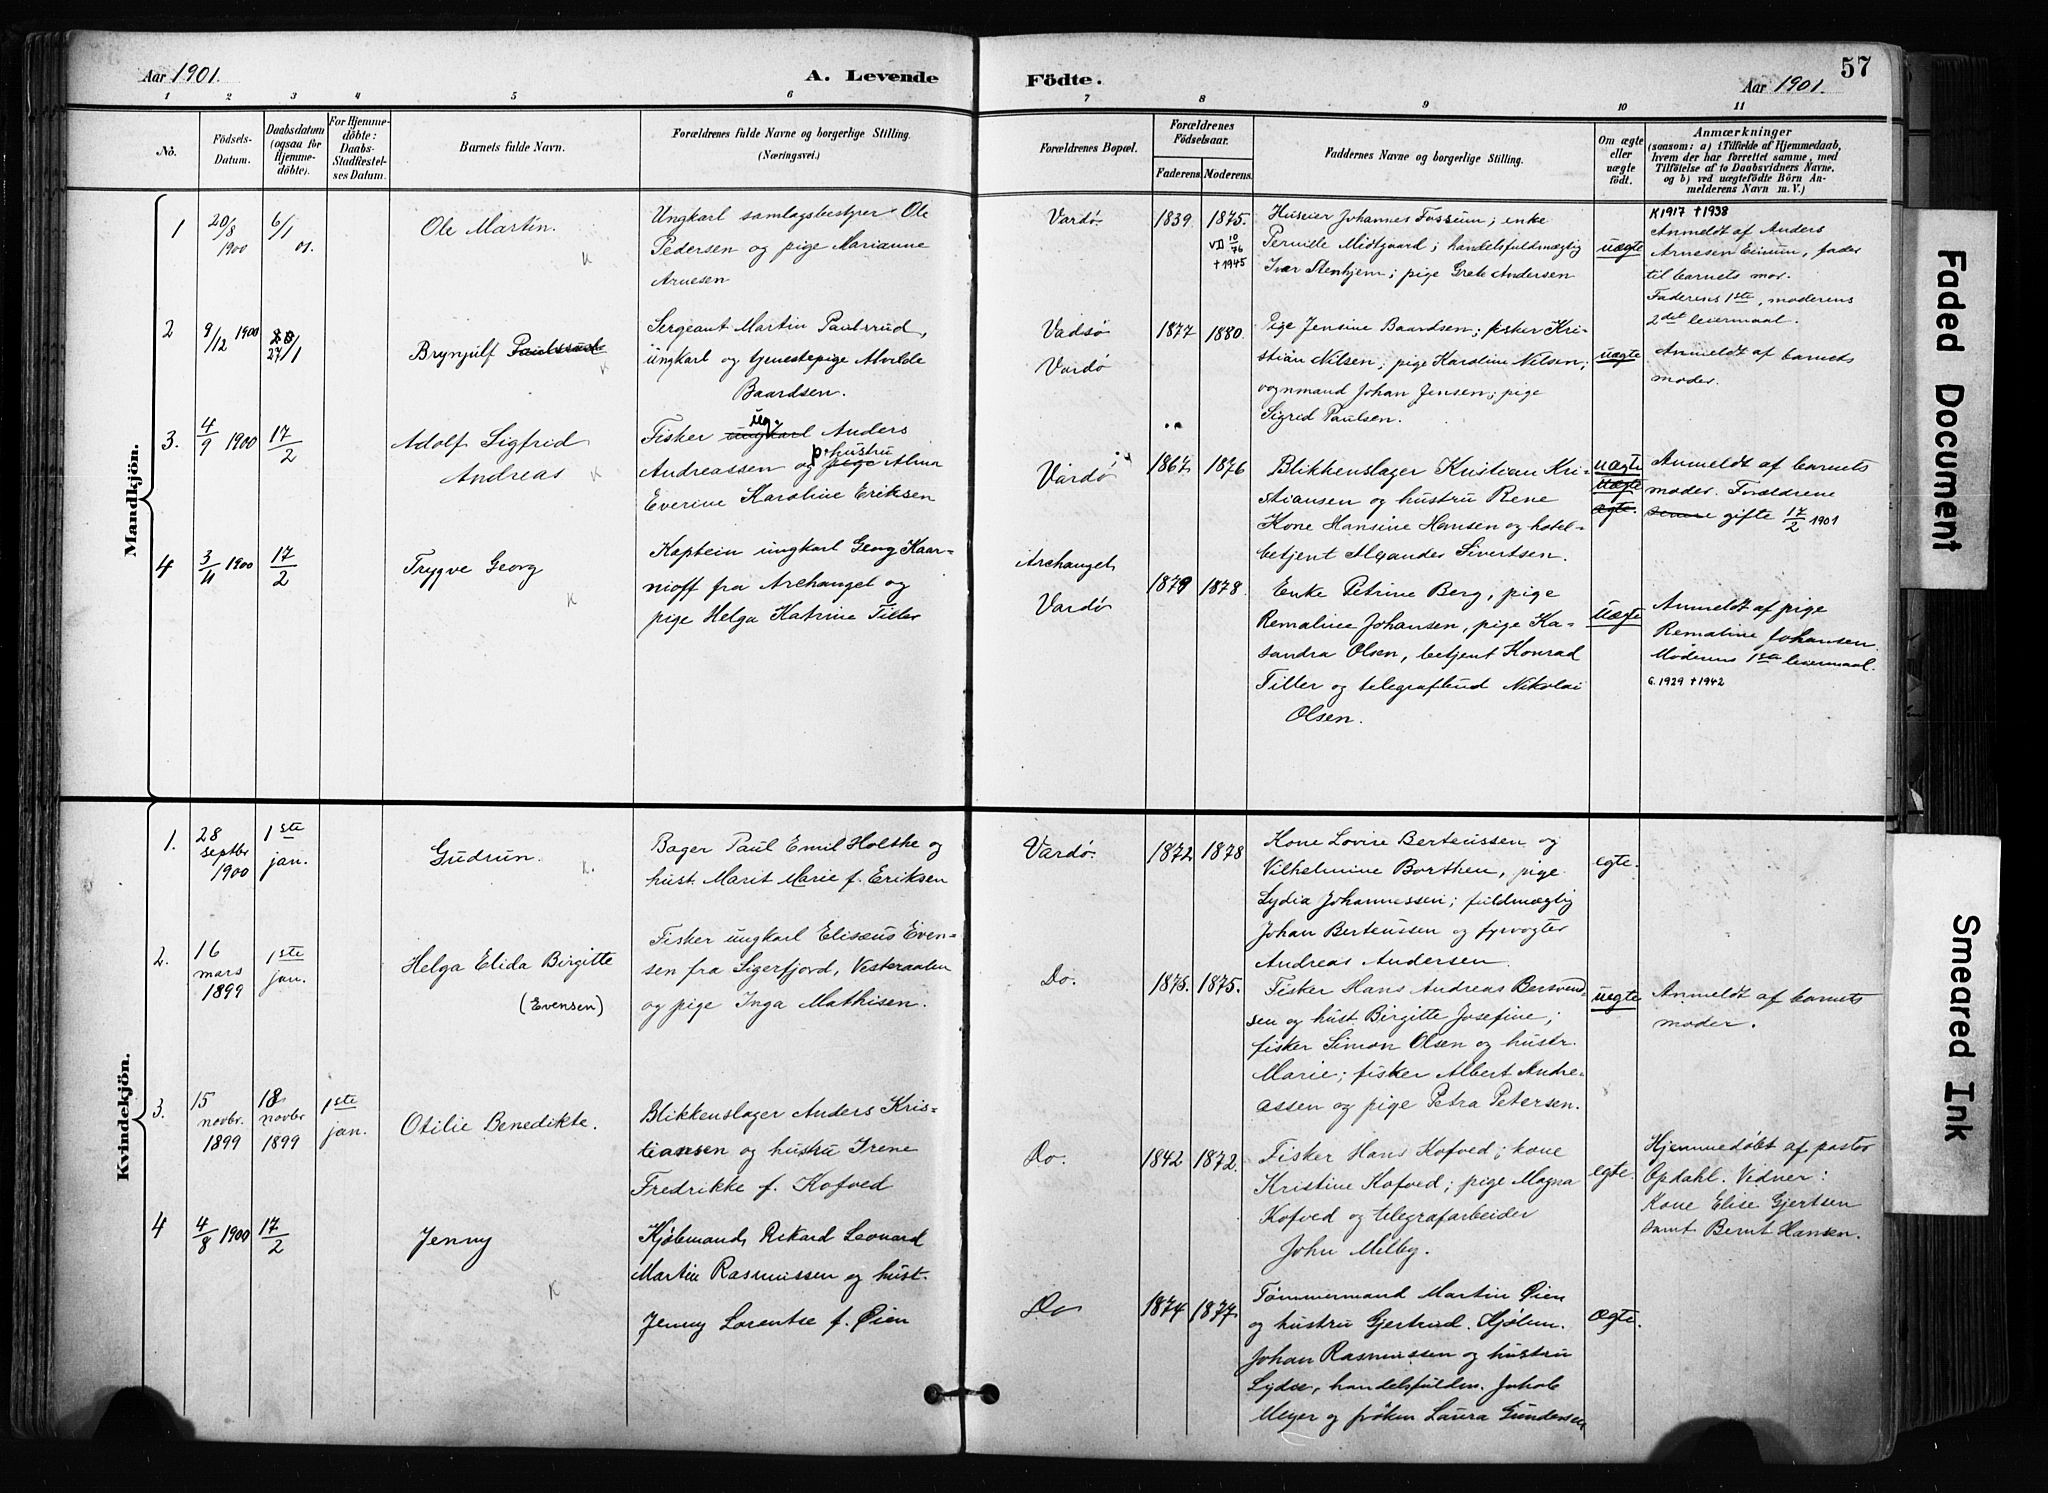 Aar 1901.
A. Levende
Födte.
Aar 1901.
57
1 2 3 4 5 6 7 8 9 10 11
No.
Födsels-
Datum.
Daabsdatum
(ogsaa for
Hjemme-
döbte).
For Hjemme-
döbte:
Daabs-
Stadfæstel-
ses Datum.
Barnets fulde Navn.
Forældrenes fulde Navne og borgerlige Stilling.
(Næringsvei.)
Forældrenes Bopæl.
Forældrenes
Födselsaar.
Faderens. Moderens.
Faddernes Navne og borgerlige Stilling.
Om ægte
eller
uægte
födt.
Anmærkninger
(saasom: a) i Tilfælde af Hjemmedaab,
hvem der har forrettet samme, med
Tilföielse af to Daabsvidners Navne,
og b) ved uægtefödte Börn An-
melderens Navn m. V.)
Mandkjön.
1
20/8
1900
6/1
01.
Ole Martin.
K
Ungkarl samlagsbestyrer Ole
Pedersen og pige Marianne
Arnesen
Vardø.
1839.
1875.
VD 10/76
†1945
Huseier Johannes Fossum; enke
Pernille Midtgaard; handelsfuldmægtig
Ivar Stenhjem; pige Grete Andersen
uægte
K1917 †1938
Anmeldt af Anders
Arnesen Einum, fader
til barnets mor.
Faderens 1ste, moderens
2det leiermaal.
2
9/12 1900
27/1
Brynjulf Paulsrud
K
Sergeant Martin Paulsrud,
ungkarl og tjenestepige Alvilde
Baardsen.
Vadsø
Vardø
1877
1880
Pige Jensine Baardsen; fisker Kri-
stian Nilsen; pige Karoline Nilsen;
vognmand Johan Jensen; pige
Sigrid Paulsen.
uægte
Anmeldt af barnets
moder.
3.
4/9 1900
17/2
Adolf Sigfrid
Andreas
K
ug.
Fisker ungkarl Anders
p. hustru
Andreassen og pige Alma
Everine Karoline Eriksen
Vardø
1867
1876
Blikkenslager Kristian Kri-
stiansen og hustru Rene
Kone Hansine Hansen og hotel-
betjent Alxander Sivertsen.
uægte
uægte
ægte.
Anmeldt af barnets
moder. Forældrene
senere gifte 17/2 1901
4
3/11 1900
17/2
Trygve Georg
K
Kaptein ungkarl Georg Kaar-
nioff fra Archangel og
pige Helga Katrine Tiller
Archangel
Vardø
1879
1878.
Enke Petrine Berg, pige
Remaline Johansen, pige Ka-
sandra Olsen, betjent Konrad
Tiller og telegrafbud Nikolai
Olsen.
uægte
Anmeldt af pige
Remaline Johansen.
Moderens 1ste leiermaal.
G. 1929 †1942
Kvindekjön.
1.
28
septbr
1900
1ste
jan.
Gudrun.
K.
Bager Paul Emil Holthe og
hust. Marit Marie f. Eriksen
Vardø.
1872
1878
Kone Lovise Berteussen og
Vilhelmine Borthen, pige
Lydia Johannessen; fuldmægtig
Johan Berteussen og fyrvogter
Andreas Andersen.
egte.
2.
16
mars
1899
1ste
jan.
Helga Elida Birgitte
(Evensen)
Fisker ungkarl Elisæus Even-
sen fra Sigerfjord, Vesteraalen
og pige Inga Mathisen.
Do.
1875.
1875.
Fisker Hans Andreas Bersvend-
sen og hust. Birgitte Josefine;
fisker Simon Olsen og hustr.
Marie; fisker Albert Andre-
assen og pige Petra Petersen.
uegte
Anmeldt af barnets
moder.
3.
15
novbr.
1899
18
novbr
1899
1ste
jan.
Otilie Benedikte.
Blikkenslager Anders Kris-
tiansen og hustru Irene
Fredrikke f. Kofved
Do.
1842
1872.
Fisker Hans Kofved; kone
Kristine Kofved; pige Magna
Kofved og telegrafarbeider
John Milby.
egte.
Hjemmedøbt af pastor
Opdahl. Vidner:
Kone Elise Gjertsen
samt Bernt Hansen.
4
4/8 1900
17/2
Jenny
K
Kjøbmand Rikard Leonard
Martin Rasmussen og hust.
Jenny Lorentse f. Øien
Do
1874
1877
Tømmermand Martin Øien
og hustru Gjertrud. Kjøbm.
Johan Rasmussen og hustru
Lydie, handelsfuldm. Jakob
Meyer og frøken Laura Gundersen
Ægte.
Faded Document
Smeared Ink